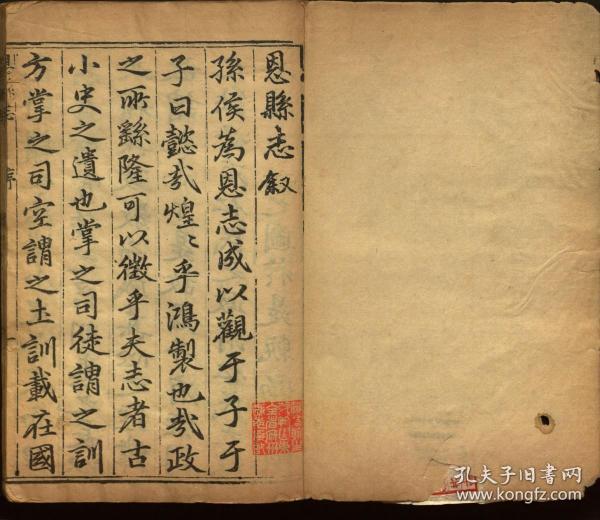 恩縣志叙
孫侯為恩志成以觀于子于
子曰懿㢤煌〻乎鴻製也㢤政
之所繇隆可以徵乎夫志者古
小史之遺也掌之司徒謂之訓
方掌之司空謂之土訓載在國
序
孔夫子旧书网
www.kongfz.com